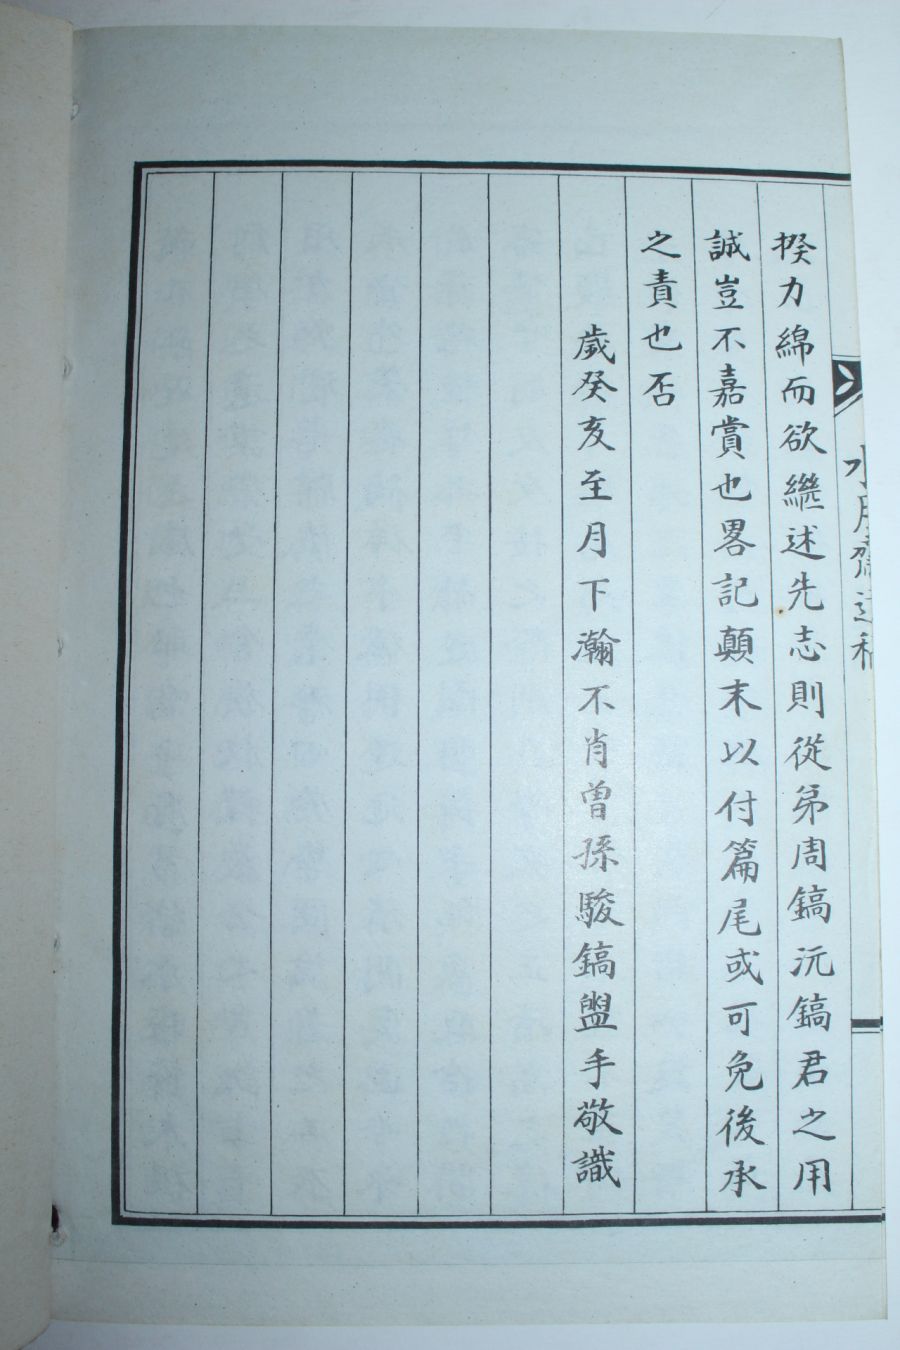 水月齋遺稿
揆力綿而欲繼述先志則從弟周鎬沅鎬君之用
誠豈不嘉賞也畧記顛末以付篇尾或可免後承
之責也否
歲癸亥至月下瀚不肖曾孫駿鎬盥手敬識